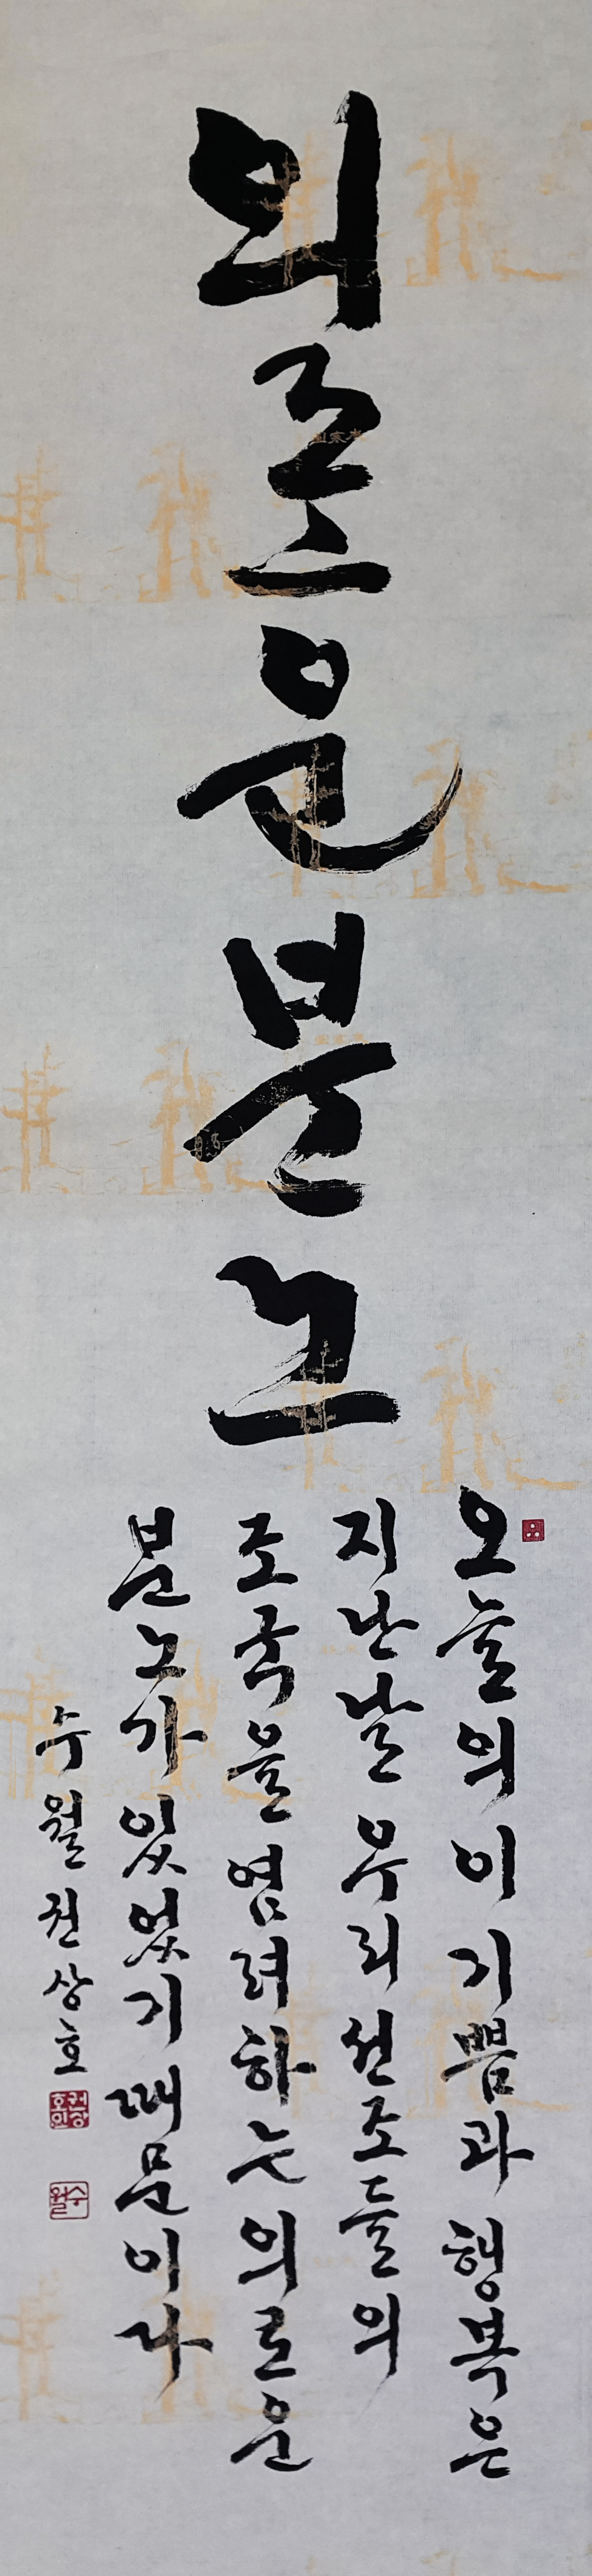 의로운 분노
오늘의 이 기쁨과 행복은
지난날 우리 선조들의
조국을 염려하는 의로운
분노가 있었기 때문이다
수월 권상호
권상호인
수월